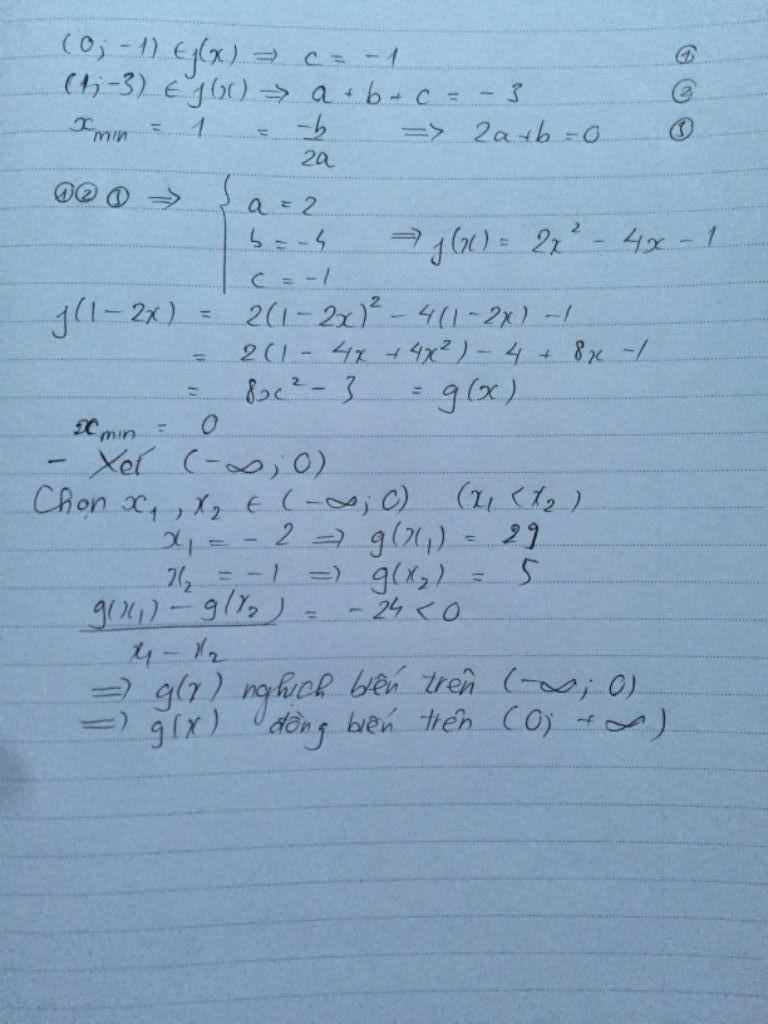 (0; -1) ∈ f(x) => c = -1 ①
(1; -3) ∈ f(x) => a + b + c = -3 ②
x_min = 1 = -b/2a => 2a+b = 0 ③
①②③ => { a = 2
b = -4 => f(x) = 2x² - 4x - 1
c = -1
f(1-2x) = 2(1-2x)² - 4(1-2x) -1
= 2(1 - 4x + 4x²) - 4 + 8x -1
= 8x² - 3 = g(x)
x_min = 0
- Xét (-∞; 0)
Chọn x₁, x₂ ∈ (-∞; 0) (x₁ < x₂)
x₁ = -2 => g(x₁) = 29
x₂ = -1 => g(x₂) = 5
g(x₁) - g(x₂) = -24 < 0
x₁ - x₂
=> g(x) nghịch biến trên (-∞; 0)
=> g(x) đồng biến trên (0; +∞)